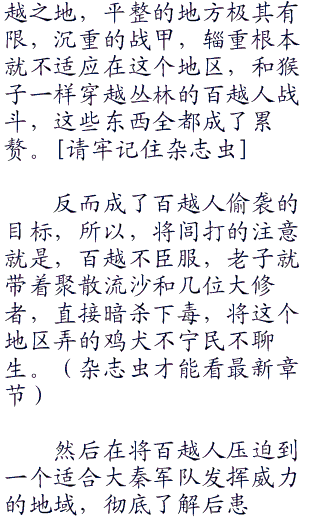 越之地，平整的地方极其有
限，沉重的战甲，辎重根本
就不适应在这个地区，和猴
子一样穿越丛林的百越人战
斗，这些东西全都成了累
赘。[请牢记住杂志虫]
反而成了百越人偷袭的
目标，所以，将闾打的注意
就是，百越不臣服，老子就
带着聚散流沙和几位大修
者，直接暗杀下毒，将这个
地区弄的鸡犬不宁民不聊
生。（杂志虫才能看最新章
节）
然后在将百越人压迫到
一个适合大秦军队发挥威力
的地域，彻底了解后患